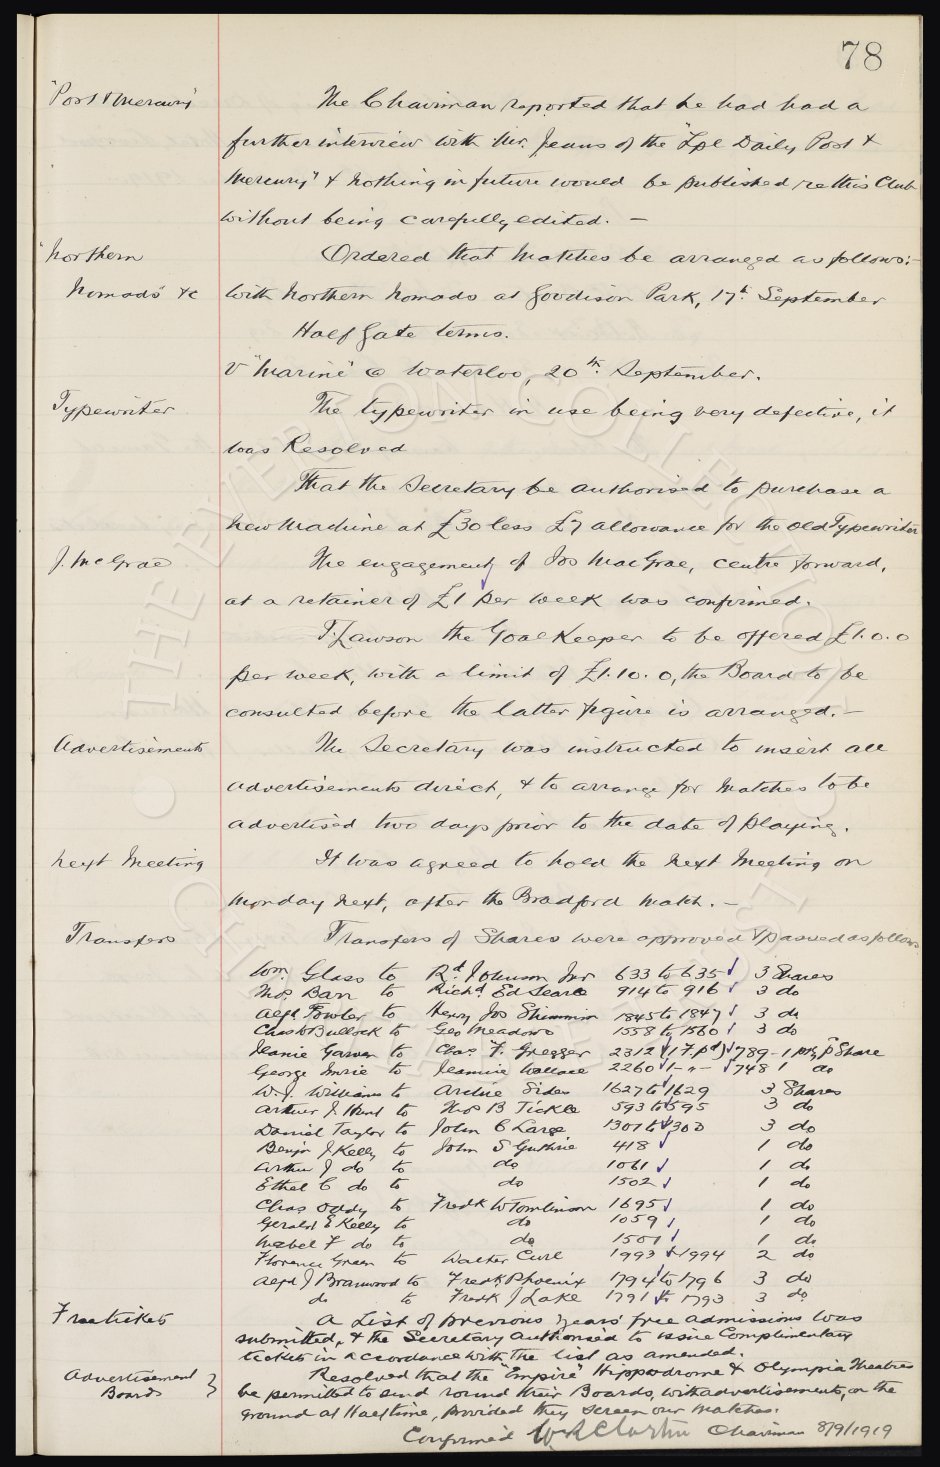 78
"Post & Mercury" The Chairman reported that he had had a
further interview with Mr. Jeans of the "Lpl Daily Post &
Mercury" & nothing in future would be published re this Club
without being carefully edited. —
"Northern Ordered that Matches be arranged as follows:-
Nomads" &c With Northern Nomads at Goodison Park, 17th September
Half Gate terms.
V "Marine" @ Waterloo, 20th September.
Typewriter The typewriter in use being very defective, it
was Resolved
That the Secretary be authorised to purchase a
new Machine at £30 less £7 allowance for the old Typewriter
J. McGrae The engagement of Jos MacGrae, centre forward,
at a retainer of £1 per week was confirmed.
T. Lawson the Goal Keeper to be offered £1.0.0
per week, with a limit of £1.10.0, the Board to be
consulted before the latter figure is arranged. —
Advertisements The Secretary was instructed to insert all
advertisements direct, & to arrange for Matches to be
advertised two days prior to the date of playing.
Next Meeting It was agreed to hold the next Meeting on
Monday next, after the Bradford match. —
Transfers Transfers of Shares were approved & passed as follows
Wm. Glass to Rd. Johnson Jnr 633 to 635 3 Shares
Thos. Barr to Richd. Ed Searle 914 to 916 3 do
Alfd. Fowler to Henry Jos Shimmin 1845 to 1847 3 do
Chas W Bullock to Geo Meadows 1558 to 1560 3 do
Jeanie Garven to Chas. F. Gregger 2312 (1 F.pd) 789 - 1 ptly pd Share
George Imrie to Jeannie Wallace 2260 1 - " - 748 1 do
W. J. Williams to Archie Sides 1627 to 1629 3 Shares
Arthur J. Hunt to Thos B Tickle 593 to 595 3 do
Daniel Taylor to John C Large 1301 to 1303 3 do
Benjn J Kelly to John S Guthrie 418 1 do
Arthur J do to do 1061 1 do
Ethel C do to do 1502 1 do
Chas Oddy to Fredk W Tomlinson 1695 1 do
Gerald E Kelly to do 1059 1 do
Mabel F do to do 1501 1 do
Florence Green to Walter Curl 1993 & 1994 2 do
Alfd J Bramwood to Fredk. Phoenix 1794 to 1796 3 do
do to Fredk J Lake 1791 to 1793 3 do
Free tickets A List of previous years' free admissions was
submitted, & the Secretary authorised to issue Complimentary
tickets in accordance with the list as amended.
Advertisement Resolved that the "Empire" Hippodrome & Olympia Theatres
Boards } be permitted to send round their Boards, with advertisements, on the
ground at Half time, provided they screen our matches.
Confirmed W R Clayton Chairman 8/9/1919
THE EVERTON COLLECTION